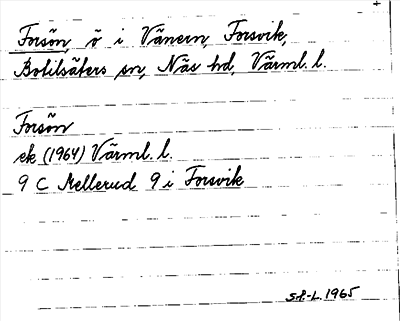 Forsön, ö i Vänern, Forsvik,
Botilsäters sn, Näs hd, Värml. l.
Forsön
ek (1964) Värml. l.
9 C Mellerud 9 i Forsvik
S.P.-L. 1965